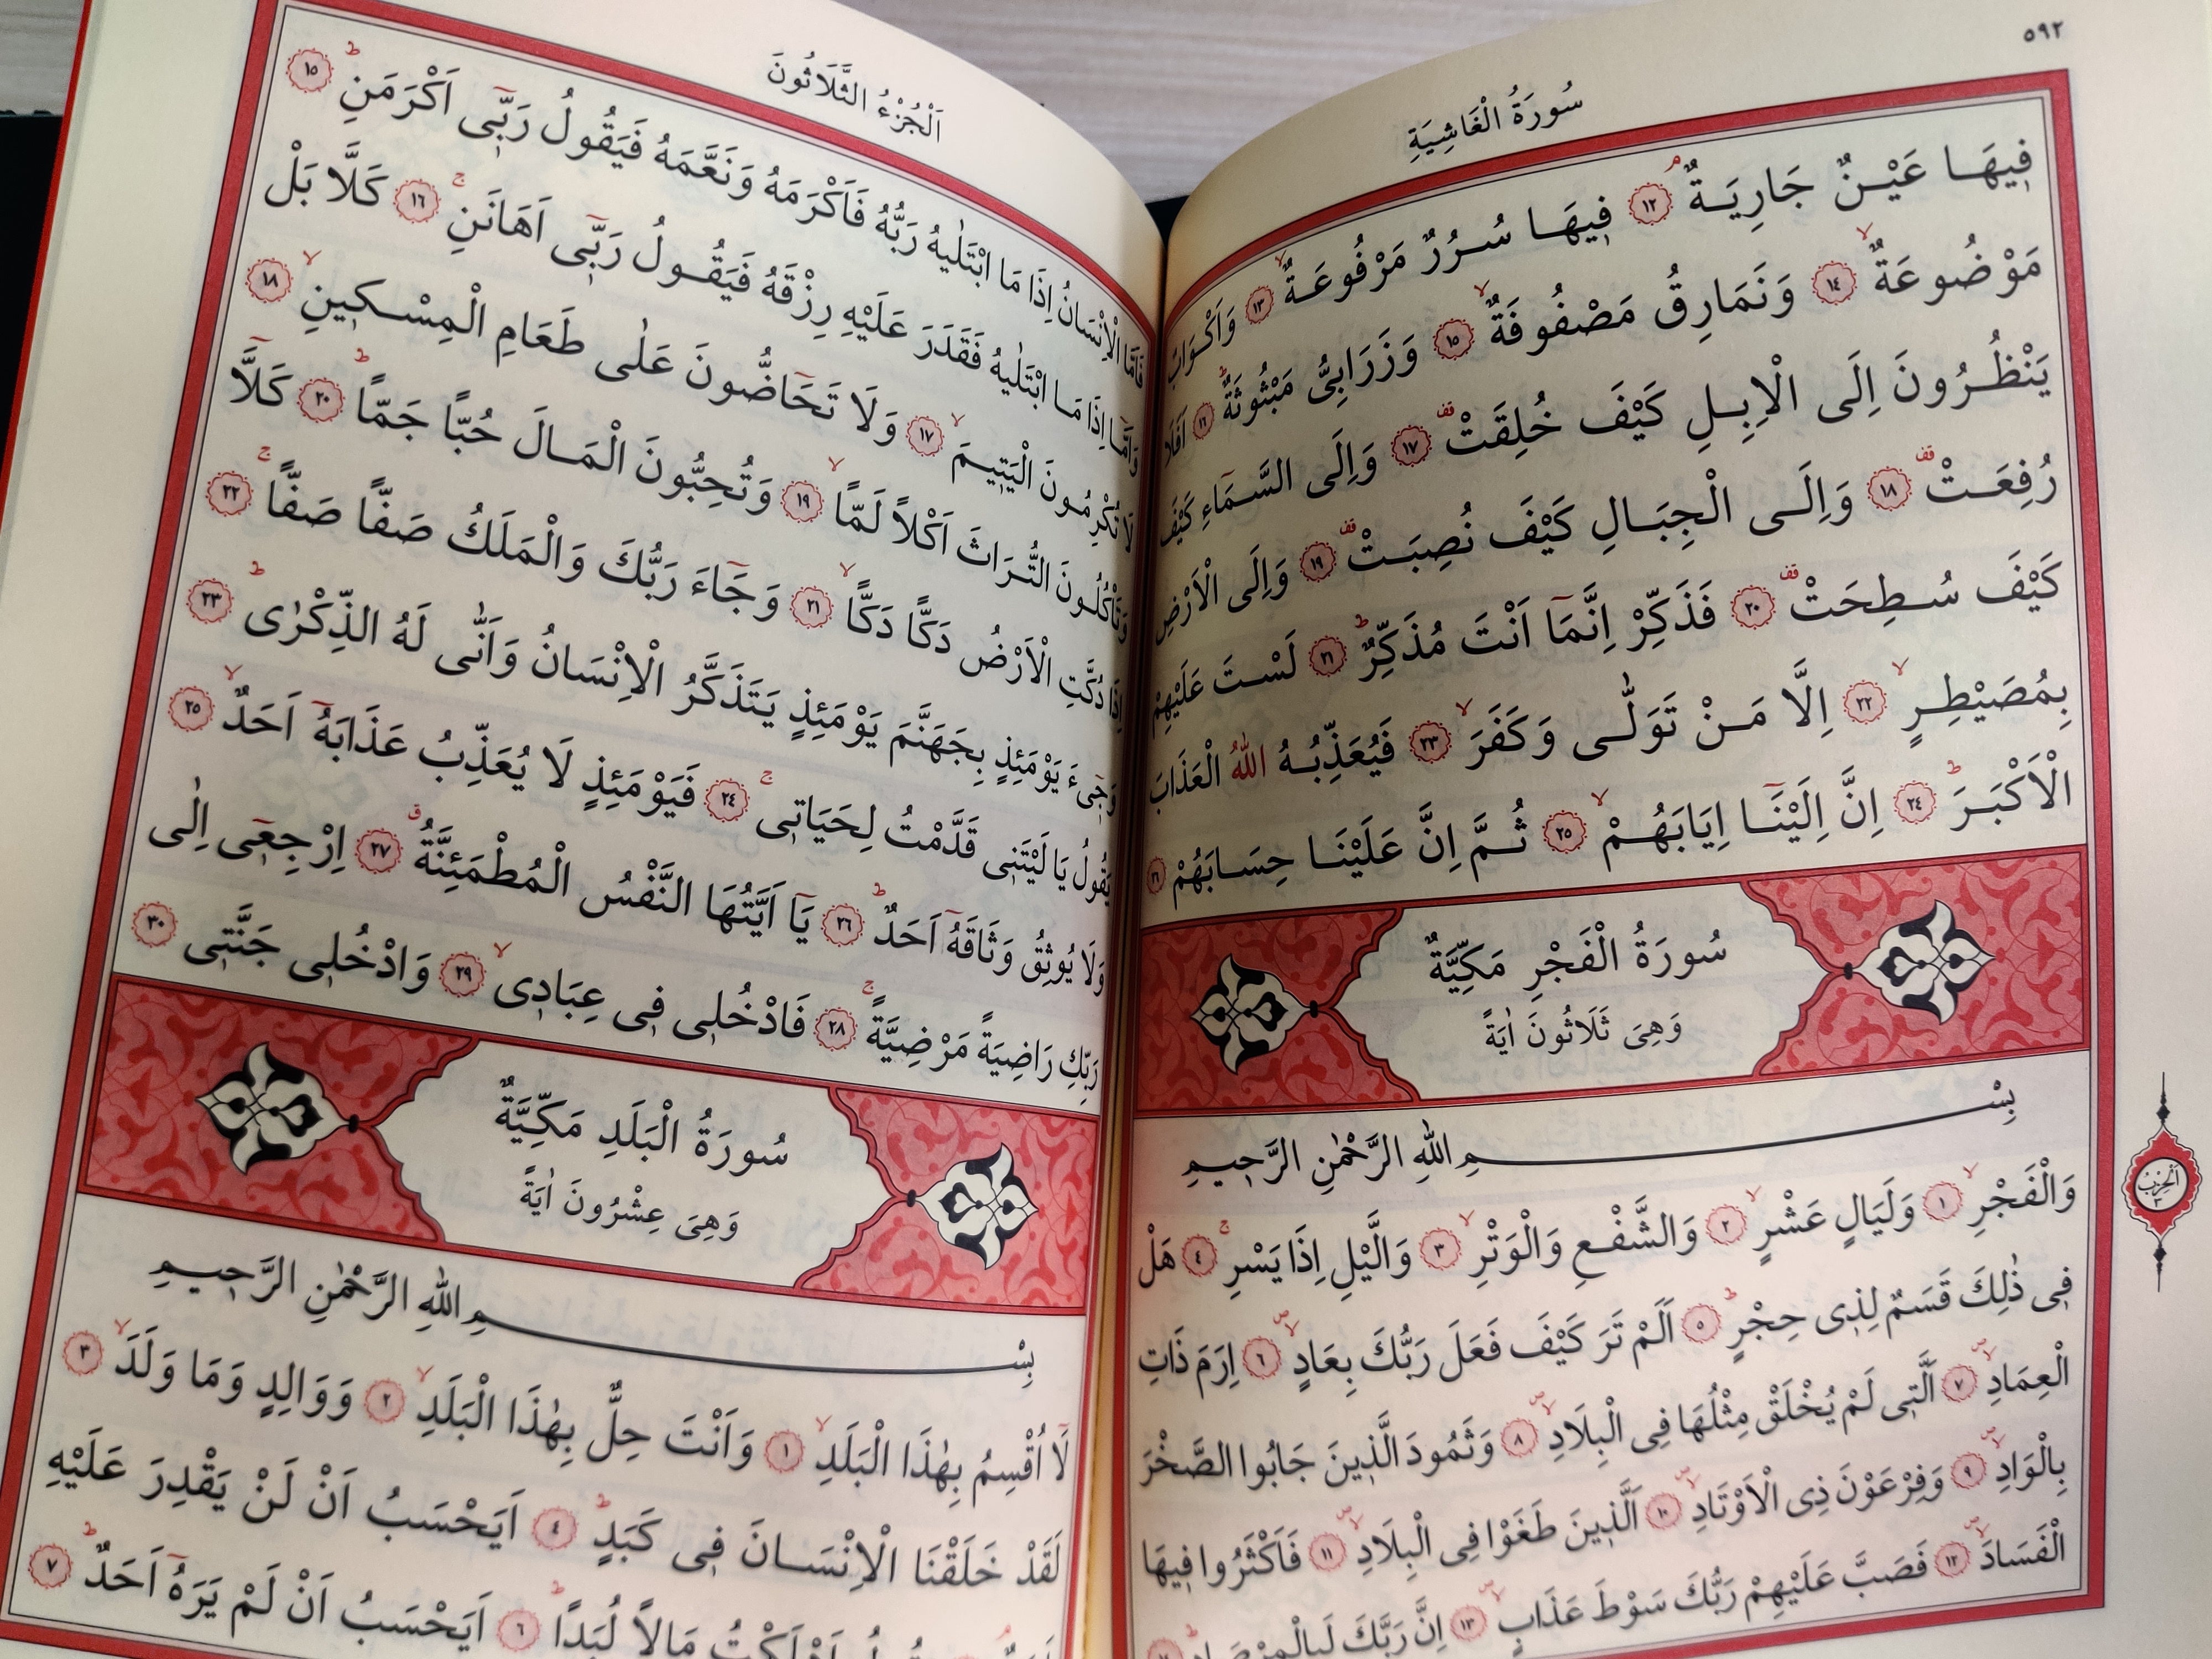 ٥٩٢
سُورَةُ الْغَاشِيَةِ
فِيهَا عَيْنٌ جَارِيَةٌ ۘ ﴿١٢﴾ فِيهَا سُرُرٌ مَرْفُوعَةٌ ۙ ﴿١٣﴾ وَاَكْوَابٌ
مَوْضُوعَةٌ ۙ ﴿١٤﴾ وَنَمَارِقُ مَصْفُوفَةٌ ۙ ﴿١٥﴾ وَزَرَابِىُّ مَبْثُوثَةٌ ۜ ﴿١٦﴾ اَفَلَا
يَنْظُرُونَ اِلَى الْاِبِلِ كَيْفَ خُلِقَتْ قف ﴿١٧﴾ وَاِلَى السَّمَٓاءِ كَيْفَ
رُفِعَتْ قف ﴿١٨﴾ وَاِلَى الْجِبَالِ كَيْفَ نُصِبَتْ قف ﴿١٩﴾ وَاِلَى الْاَرْضِ
كَيْفَ سُطِحَتْ قف ﴿٢٠﴾ فَذَكِّرْ اِنَّمَٓا اَنْتَ مُذَكِّرٌ ط ﴿٢١﴾ لَسْتَ عَلَيْهِمْ
بِمُصَيْطِرٍ ۙ ﴿٢٢﴾ اِلَّا مَنْ تَوَلّٰى وَكَفَرَ ۙ ﴿٢٣﴾ فَيُعَذِّبُهُ اللّٰهُ الْعَذَابَ
الْاَكْبَرَ ط ﴿٢٤﴾ اِنَّ اِلَيْنَٓا اِيَابَهُمْ ۙ ﴿٢٥﴾ ثُمَّ اِنَّ عَلَيْنَا حِسَابَهُمْ ﴿٢٦﴾
سُورَةُ الْفَجْرِ مَكِّيَّةٌ
وَهِىَ ثَلَاثُونَ اٰيَةً
بِسْمِ اللّٰهِ الرَّحْمٰنِ الرَّحِيمِ
وَالْفَجْرِ ۙ ﴿١﴾ وَلَيَالٍ عَشْرٍ ۙ ﴿٢﴾ وَالشَّفْعِ وَالْوَتْرِ ۙ ﴿٣﴾ وَالَّيْلِ اِذَا يَسْرِ ۚ ﴿٤﴾ هَلْ
فِى ذٰلِكَ قَسَمٌ لِذِى حِجْرٍ ط ﴿٥﴾ اَلَمْ تَرَ كَيْفَ فَعَلَ رَبُّكَ بِعَادٍ ۙ ﴿٦﴾ اِرَمَ ذَاتِ
الْعِمَادِ ۙ ﴿٧﴾ اَلَّتِى لَمْ يُخْلَقْ مِثْلُهَا فِى الْبِلَادِ ۙ ﴿٨﴾ وَثَمُودَ الَّذِينَ جَابُوا الصَّخْرَ
بِالْوَادِ ۙ ﴿٩﴾ وَفِرْعَوْنَ ذِى الْاَوْتَادِ ۙ ﴿١٠﴾ اَلَّذِينَ طَغَوْا فِى الْبِلَادِ ۙ ﴿١١﴾ فَاَكْثَرُوا فِيهَا
الْفَسَادَ ۙ ﴿١٢﴾ فَصَبَّ عَلَيْهِمْ رَبُّكَ سَوْطَ عَذَابٍ ۙ ﴿١٣﴾ اِنَّ رَبَّكَ لَبِالْمِرْصَادِ
اَلْحِزْبُ
٣
اَلْجُزْءُ الثَّلَاثُونَ
فَاَمَّا الْاِنْسَانُ اِذَا مَا ابْتَلٰيهُ رَبُّهُ فَاَكْرَمَهُ وَنَعَّمَهُ فَيَقُولُ رَبِّٓى اَكْرَمَنِ ط ﴿١٥﴾
وَاَمَّٓا اِذَا مَا ابْتَلٰيهُ فَقَدَرَ عَلَيْهِ رِزْقَهُ فَيَقُولُ رَبِّٓى اَهَانَنِ ۚ ﴿١٦﴾ كَلَّا بَلْ
لَا تُكْرِمُونَ الْيَتِيمَ ۙ ﴿١٧﴾ وَلَا تَحَٓاضُّونَ عَلٰى طَعَامِ الْمِسْكِينِ ۙ ﴿١٨﴾
وَتَأْكُلُونَ التُّرَاثَ اَكْلًا لَمًّا ۙ ﴿١٩﴾ وَتُحِبُّونَ الْمَالَ حُبًّا جَمًّا ط ﴿٢٠﴾ كَلَّٓا
اِذَا دُكَّتِ الْاَرْضُ دَكًّا دَكًّا ۙ ﴿٢١﴾ وَجَٓاءَ رَبُّكَ وَالْمَلَكُ صَفًّا صَفًّا ۚ ﴿٢٢﴾
وَجِٓىءَ يَوْمَئِذٍ بِجَهَنَّمَ يَوْمَئِذٍ يَتَذَكَّرُ الْاِنْسَانُ وَاَنّٰى لَهُ الذِّكْرٰى ط ﴿٢٣﴾
يَقُولُ يَا لَيْتَنِى قَدَّمْتُ لِحَيَاتِى ۚ ﴿٢٤﴾ فَيَوْمَئِذٍ لَا يُعَذِّبُ عَذَابَهُٓ اَحَدٌ ۙ ﴿٢٥﴾
وَلَا يُوثِقُ وَثَاقَهُٓ اَحَدٌ ط ﴿٢٦﴾ يَٓا اَيَّتُهَا النَّفْسُ الْمُطْمَئِنَّةُ ق ﴿٢٧﴾ اِرْجِعِٓى اِلٰى
رَبِّكِ رَاضِيَةً مَرْضِيَّةً ۚ ﴿٢٨﴾ فَادْخُلِى فِى عِبَادِى ۙ ﴿٢٩﴾ وَادْخُلِى جَنَّتِى ﴿٣٠﴾
سُورَةُ الْبَلَدِ مَكِّيَّةٌ
وَهِىَ عِشْرُونَ اٰيَةً
بِسْمِ اللّٰهِ الرَّحْمٰنِ الرَّحِيمِ
لَٓا اُقْسِمُ بِهٰذَا الْبَلَدِ ۙ ﴿١﴾ وَاَنْتَ حِلٌّ بِهٰذَا الْبَلَدِ ۙ ﴿٢﴾ وَوَالِدٍ وَمَا وَلَدَ ۙ ﴿٣﴾
لَقَدْ خَلَقْنَا الْاِنْسَانَ فِى كَبَدٍ ط ﴿٤﴾ اَيَحْسَبُ اَنْ لَنْ يَقْدِرَ عَلَيْهِ
اَهْلَكْتُ مَالًا لُبَدًا ط ﴿٦﴾ اَيَحْسَبُ اَنْ لَمْ يَرَهُٓ اَحَدٌ ط ﴿٧﴾